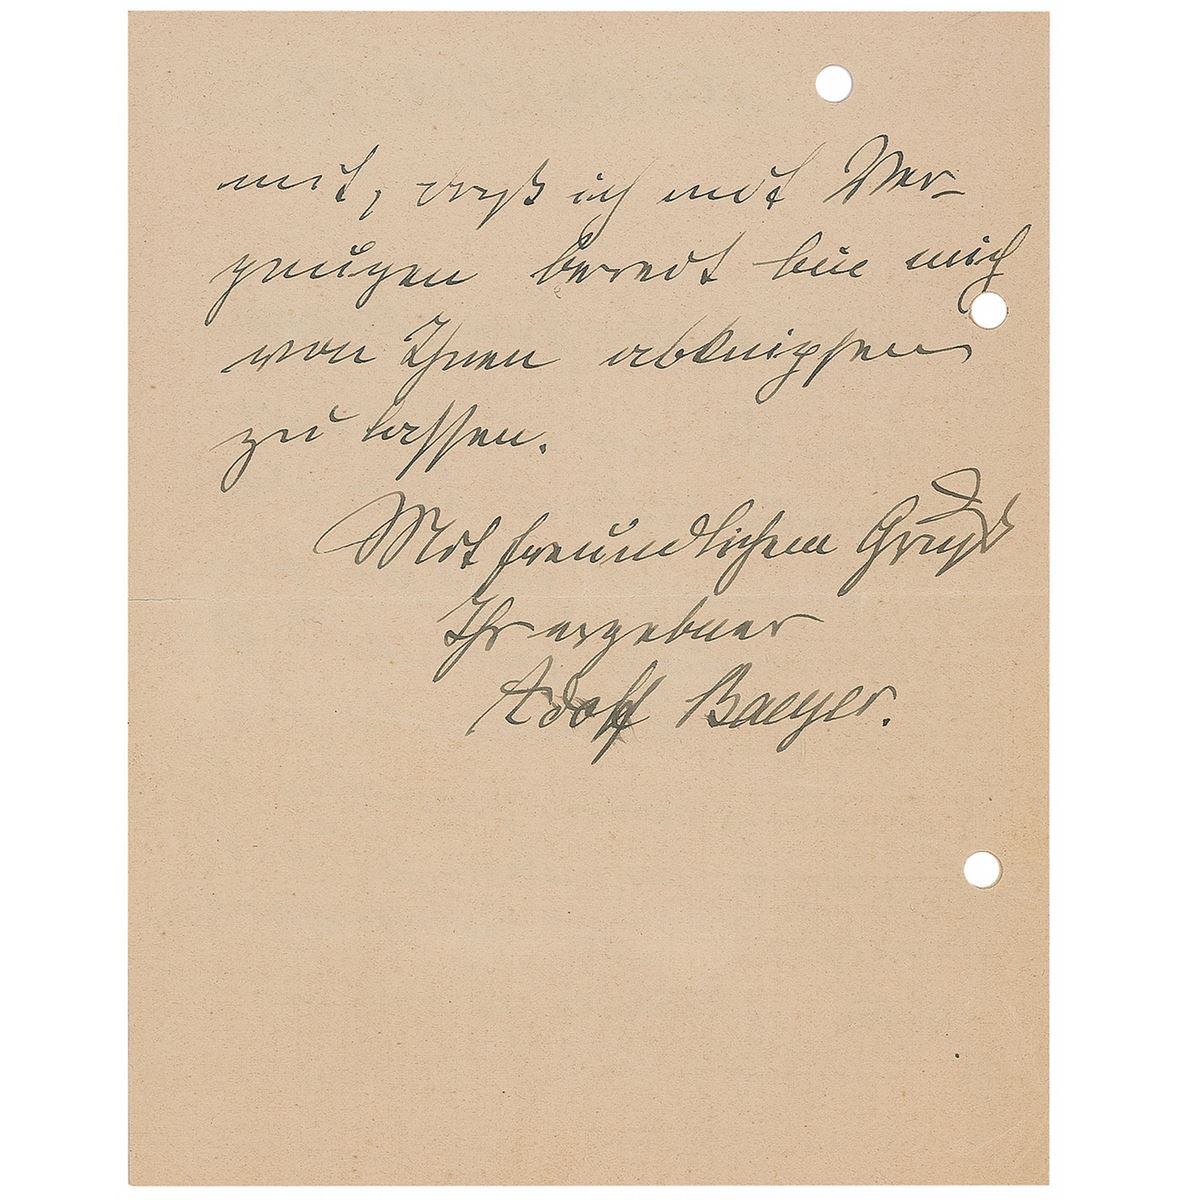 mit, daß ich mit Ver-
gnügen bereit bin mich
von Ihnen abknipsen
zu lassen.
Mit freundlichem Gruß
Ihr ergebner
Adolf Baeyer.